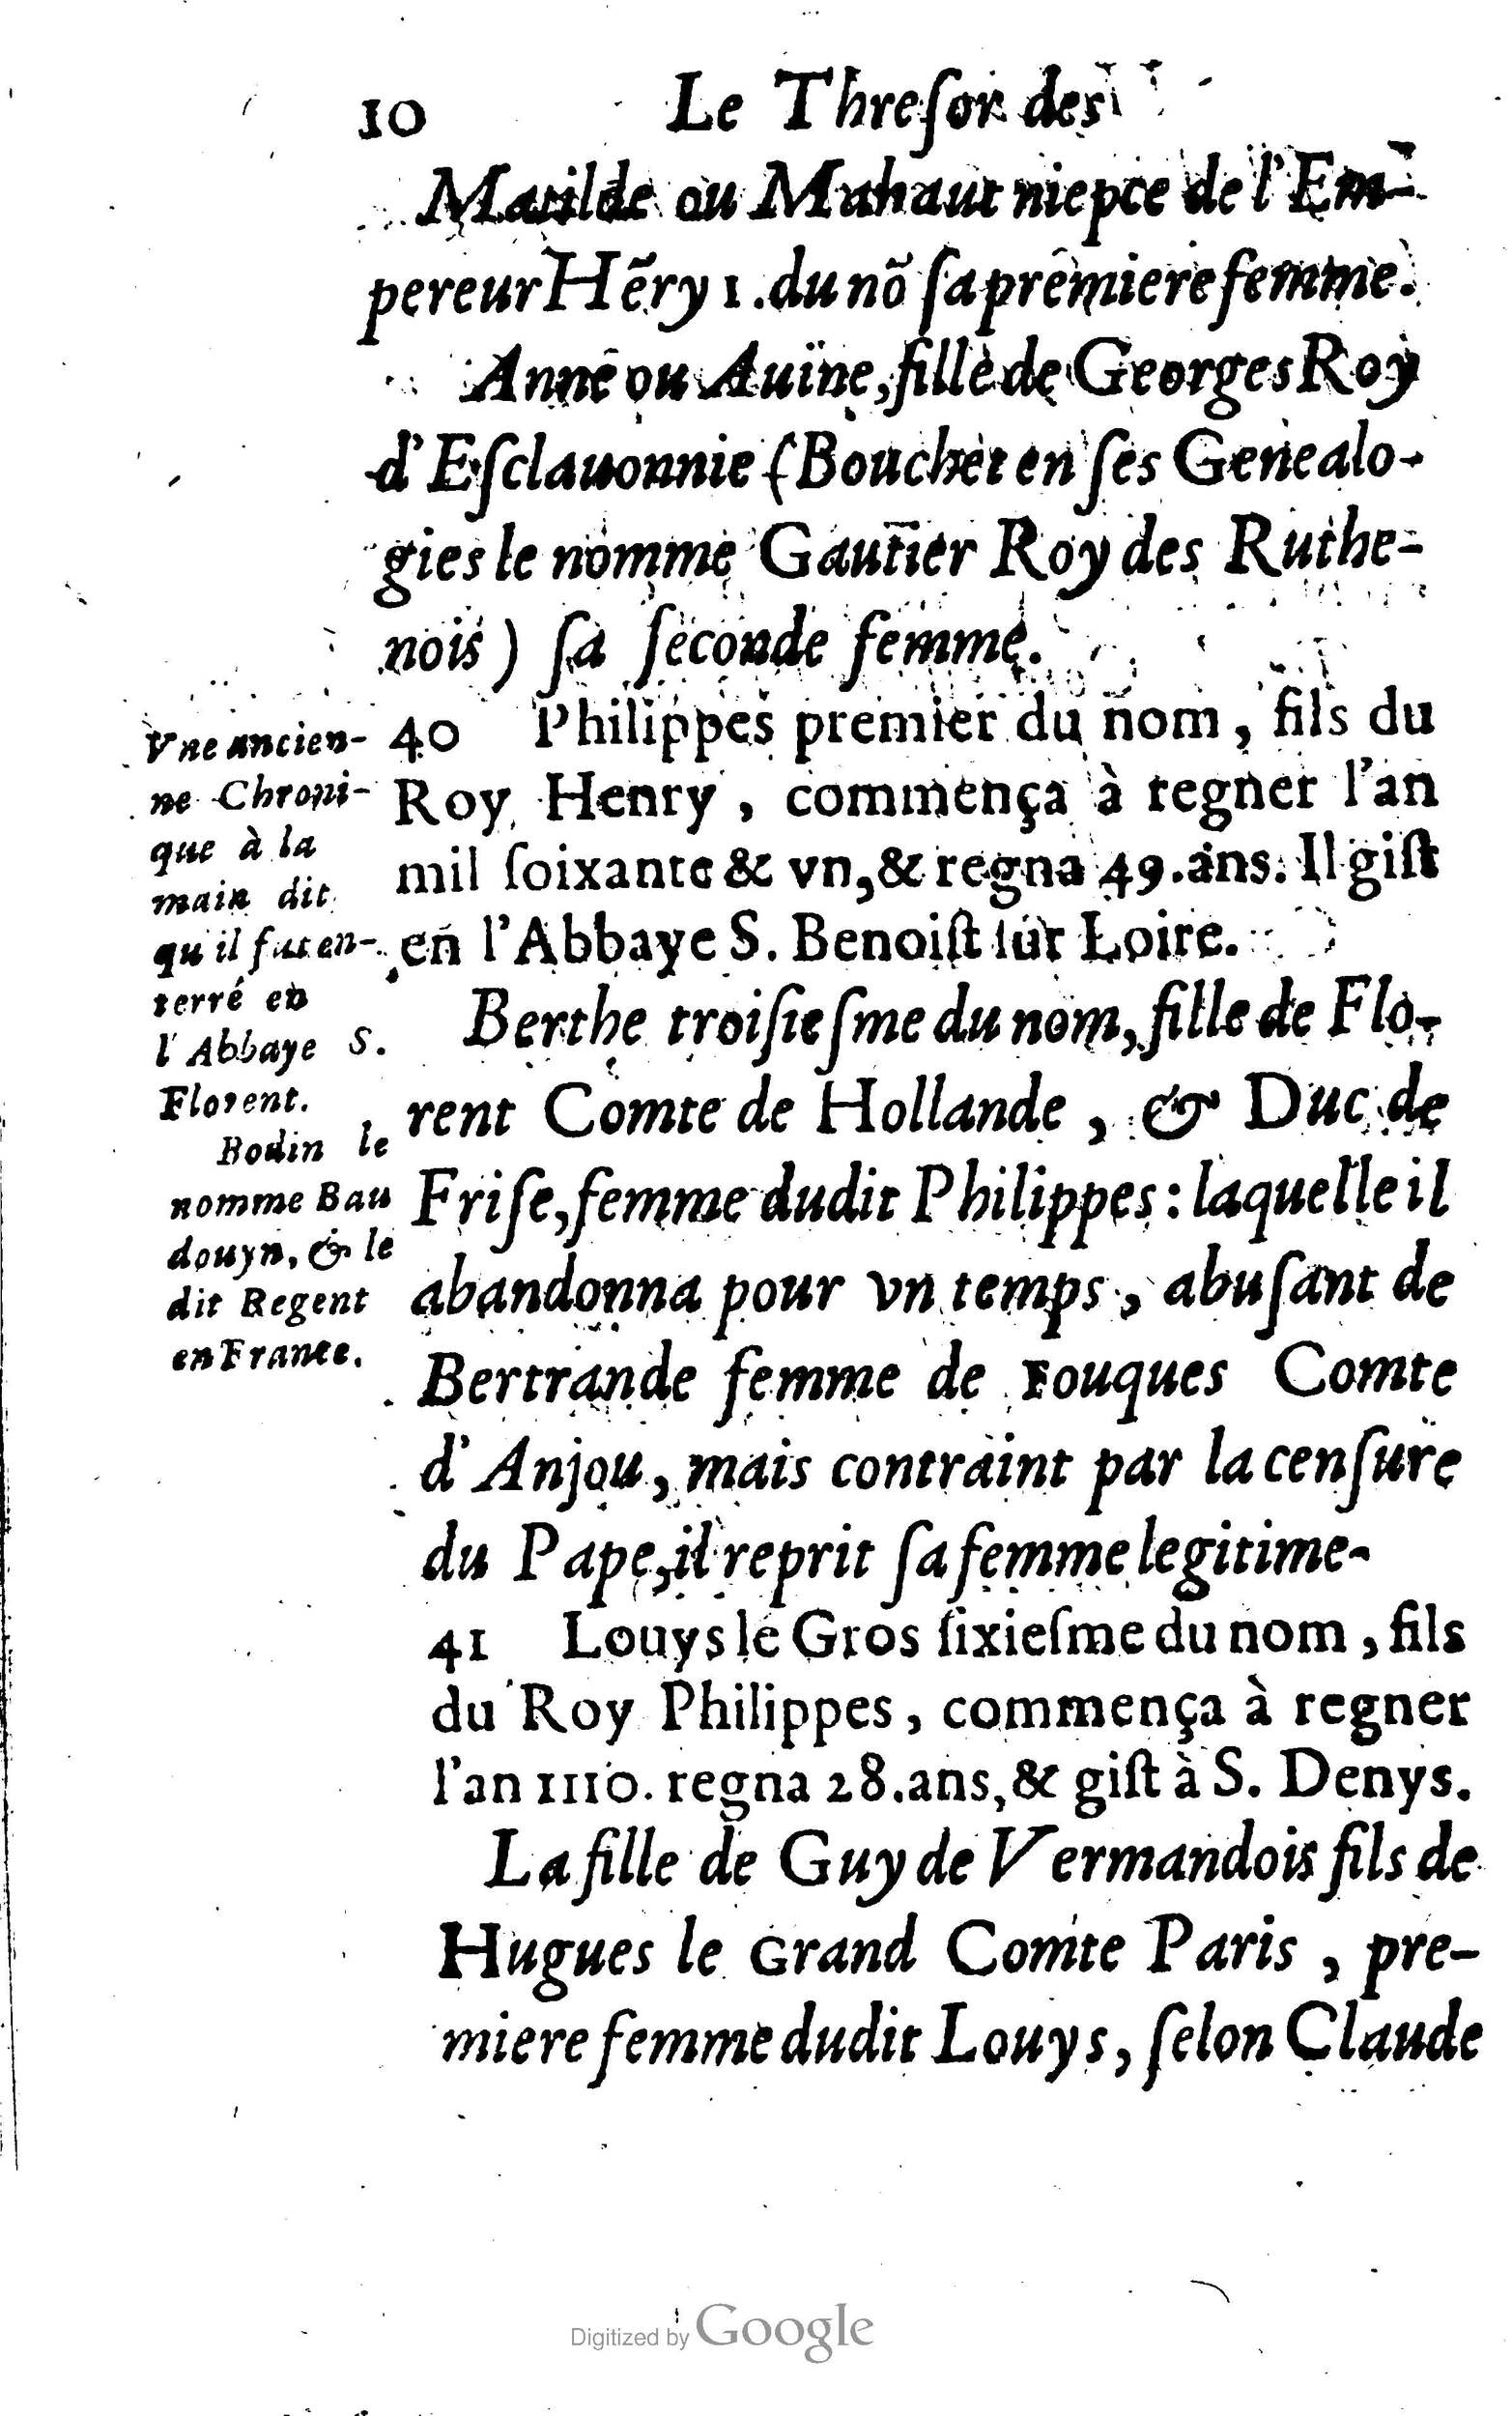 10 Le Thresor des
Matilde ou Mahaut niepce de l'Em-
pereur Hẽry 1. du nõ sa premiere femme.
Anne ou Auine, fille de Georges Roy
d'Esclauonnie (Bouchet en ses Genealo-
gies le nomme Gautier Roy des Ruthe-
nois) sa seconde femme.
40 Philippes premier du nom, fils du
Roy Henry, commença à regner l'an
mil soixante & vn, & regna 49. ans. Il gist
en l'Abbaye S. Benoist sur Loire.
Berthe troisiesme du nom, fille de Flo-
rent Comte de Hollande, & Duc de
Frise, femme dudit Philippes: laquelle il
abandonna pour vn temps, abusant de
Bertrande femme de Fouques Comte
d'Anjou, mais contraint par la censure
du Pape, il reprit sa femme legitime-
41 Louys le Gros sixiesme du nom, fils
du Roy Philippes, commença à regner
l'an 1110. regna 28. ans, & gist à S. Denys.
La fille de Guy de Vermandois fils de
Hugues le Grand Comte Paris, pre-
miere femme dudit Louys, selon Claude
Vne ancien-
ne Chroni-
que à la
main dit
qu'il fut en-
terré en
l'Abbaye S.
Florent.
Bodin le
nomme Bau
douyn, & le
dit Regent
en France.
Digitized by Google